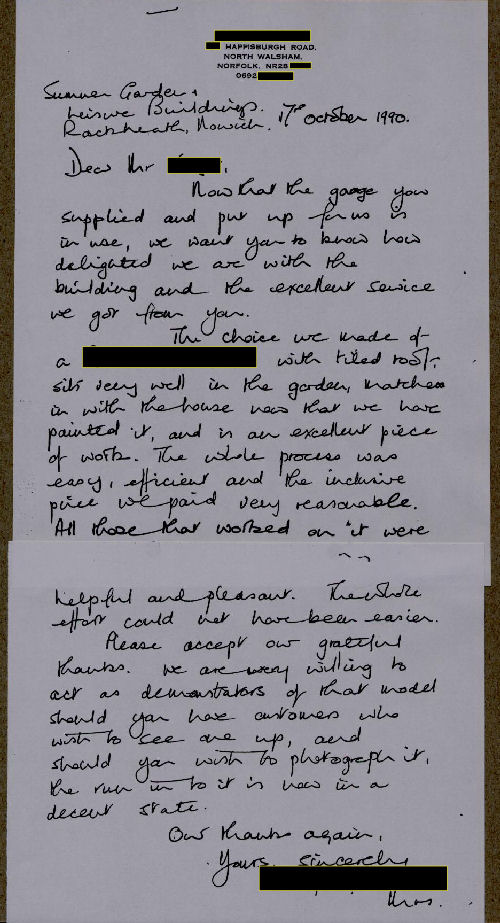 HAPPISBURGH ROAD,
NORTH WALSHAM,
NORFOLK, NR28
0692
Summer Garden &
Leisure Buildings.
Rackheath, Norwich. 17th October 1990.
Dear Mr
Now that the garage you
supplied and put up for us is
in use, we want you to know how
delighted we are with the
building and the excellent service
we got from you.
The choice we made of
a with tiled roof,
sits very well in the garden, matches
in with the house now that we have
painted it, and is an excellent piece
of work. The whole process was
easy, efficient and the inclusive
price we paid very reasonable.
All those that worked on it were
helpful and pleasant. The whole
effort could not have been easier.
Please accept our grateful
thanks. We are very willing to
act as demonstrators of that model
should you have customers who
wish to see one up, and
should you wish to photograph it,
the run in to it is now in a
decent state.
Our thanks again,
Yours sincerely
Mrs.